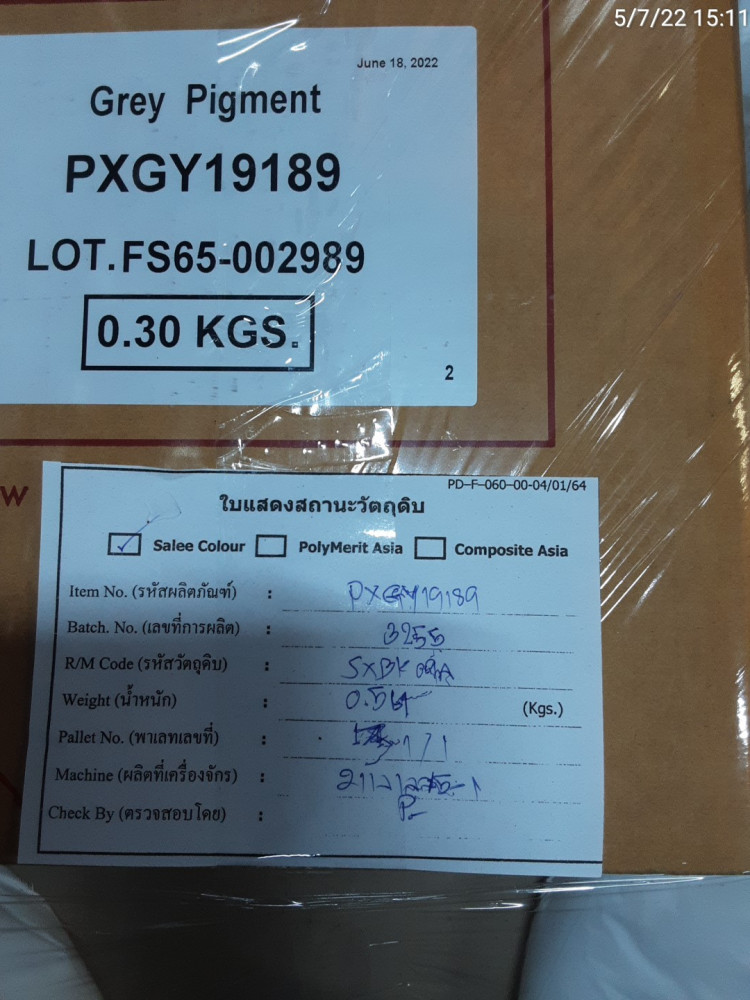 5/7/22 15:11
June 18, 2022
Grey Pigment
PXGY19189
LOT.FS65-002989
0.30 KGS.
2
W
PD-F-060-00-04/01/64
ใบแสดงสถานะวัตถุดิบ
Salee Colour PolyMerit Asia Composite Asia
Item No. (รหัสผลิตภัณฑ์) : PXGY19189
Batch. No. (เลขที่การผลิต) : 3255
R/M Code (รหัสวัตถุดิบ) :
Weight (น้ำหนัก) : (Kgs.)
Pallet No. (พาเลทเลขที่) : 1/1
Machine (ผลิตที่เครื่องจักร) :
Check By (ตรวจสอบโดย) :